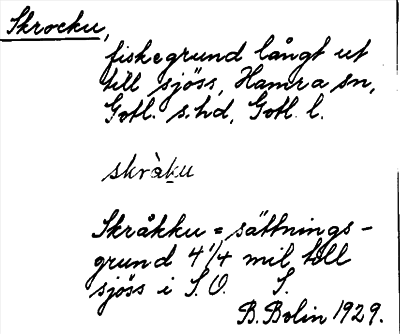 Skrocku,
fiskegrund långt ut
till sjöss, Hamra sn,
Gotl. s. hd, Gotl. l.
skràku
Skråkku = sättnings-
grund 4 1/4 mil till
sjöss i S.O. S.
B. Bolin 1929.